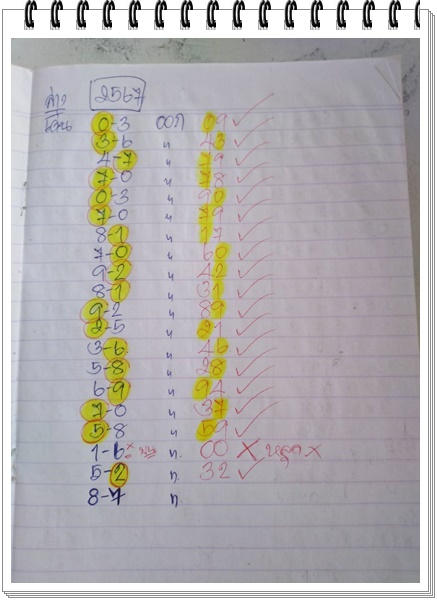 ล่าง 2567
เด่น 0-3 ออก 09 ✓
3-6 " 43 ✓
4-7 " 79 ✓
7-0 " 78 ✓
0-3 " 90 ✓
7-0 " 79 ✓
8-1 " 17 ✓
7-0 " 60 ✓
9-2 " 42 ✓
8-1 " 31 ✓
9-2 " 89 ✓
2-5 " 21 ✓
3-6 " 46 ✓
5-8 " 28 ✓
6-9 " 94 ✓
7-0 " 37 ✓
5-8 " 59 ✓
1-6 × " 00 × หลุด ×
5-2 " 32 ✓
8-7 "